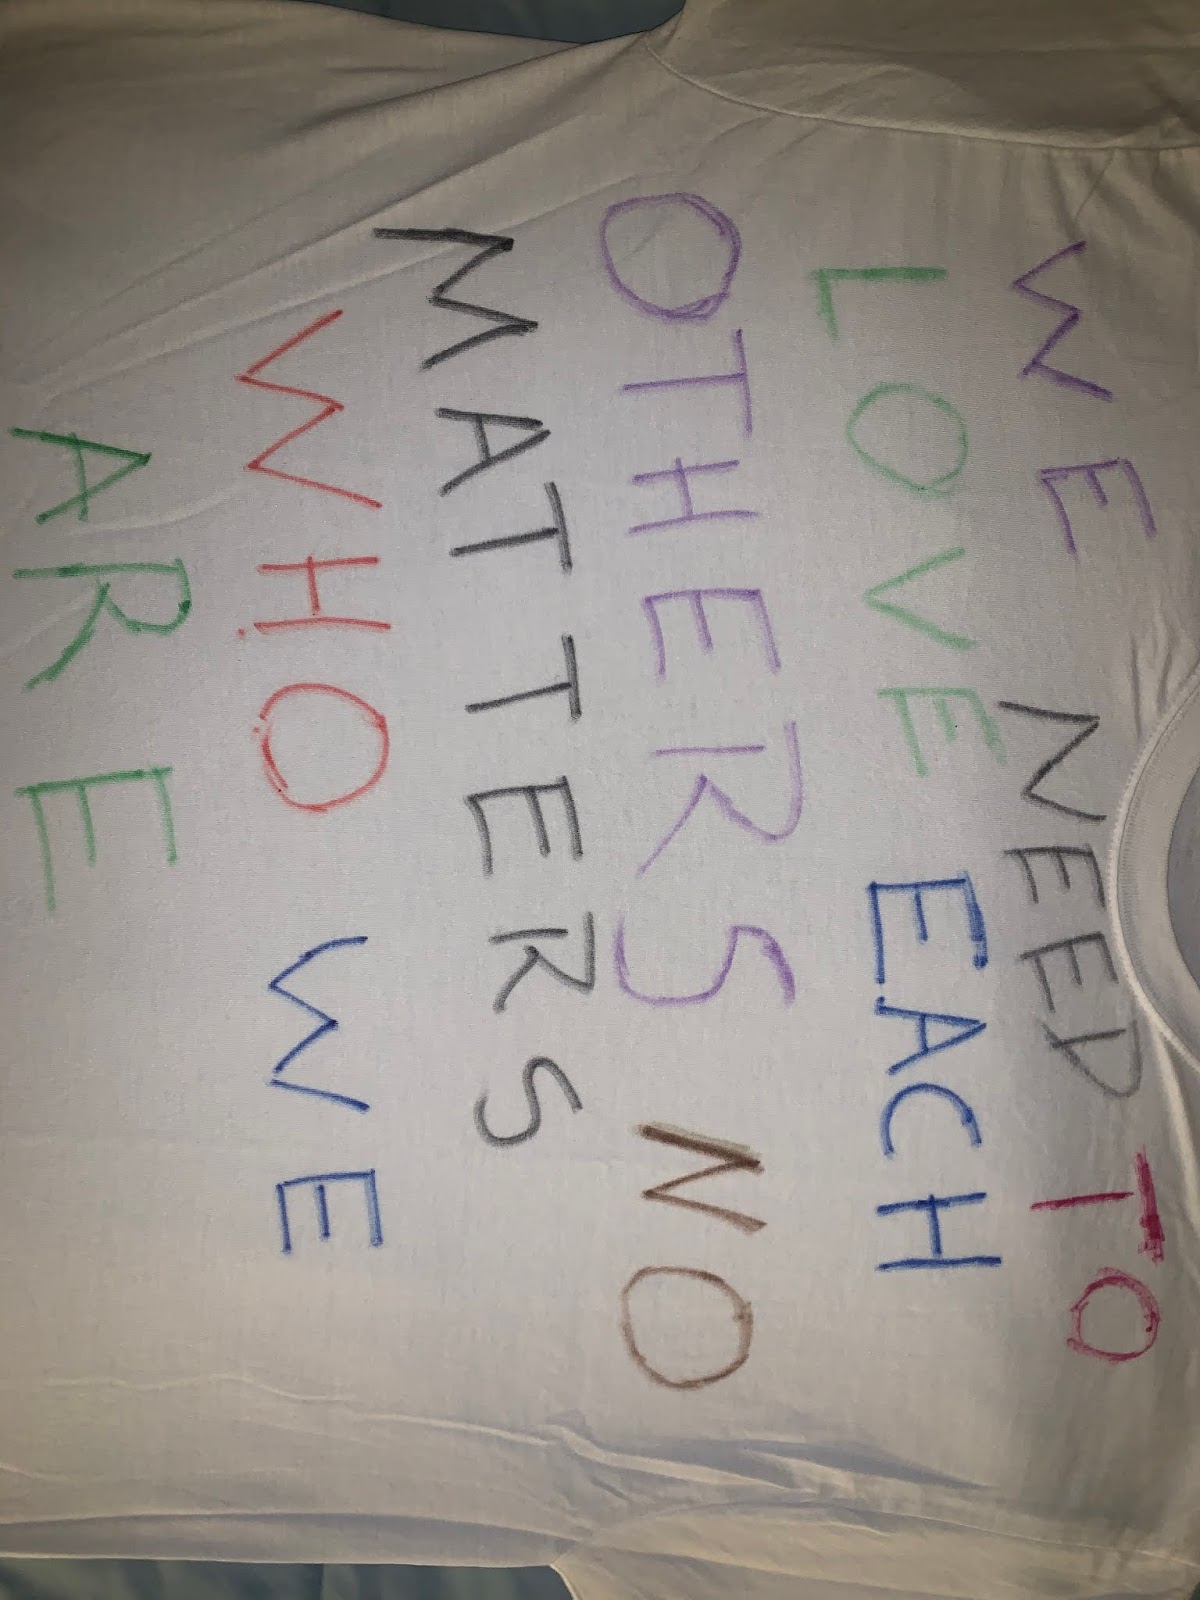 WE NEED TO
LOVE EACH
OTHERS NO
MATTERS
WHO WE
ARE